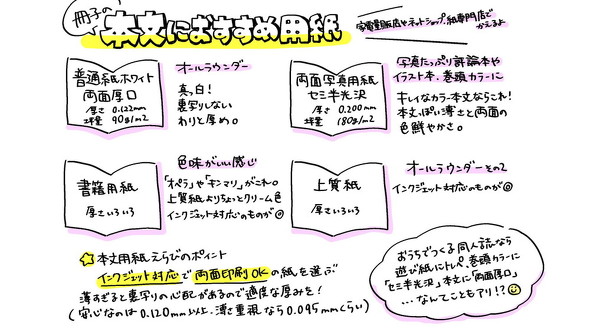 冊子の
本文におすすめ用紙
家電量販店やネットショップ、紙専門店で
かえるよ
普通紙ホワイト
両面厚口
厚さ 0.122mm
坪量 90g/m2
オールラウンダー
真っ白！
裏写りしない
わりと厚め。
両面写真用紙
セミ半光沢
厚さ 0.200mm
坪量 180g/m2
写真たっぷり評論本や
イラスト本、巻頭カラーに
キレイなカラー本文ならこれ！
本文っぽい薄さと両面の
色鮮やかさ。
書籍用紙
厚さいろいろ
色味がいい感じ
「オペラ」や「キンマリ」がこれ。
上質紙よりちょっとクリーム色
インクジェット対応のものが◎
上質紙
厚さいろいろ
オールラウンダーその2
インクジェット対応のものが◎
☆本文用紙えらびのポイント
インクジェット対応で両面印刷OKの紙を選ぶ
薄すぎると裏写りの心配があるので適度な厚みを！
(安心なのは0.120mm以上、薄さ重視なら0.095mmくらい)
おうちでつくる同人誌なら
遊び紙にトレペ、巻頭カラーに
「セミ半光沢」、本文に「両面厚口」
…なんてこともアリ！？